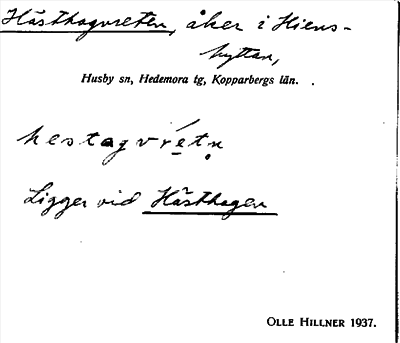 Hästhagvreten, åker i Hiens-
hyttan,
Husby sn, Hedemora tg, Kopparbergs län.
hestagvrétn̥
Ligger vid Hästhagen
OLLE HILLNER 1937.